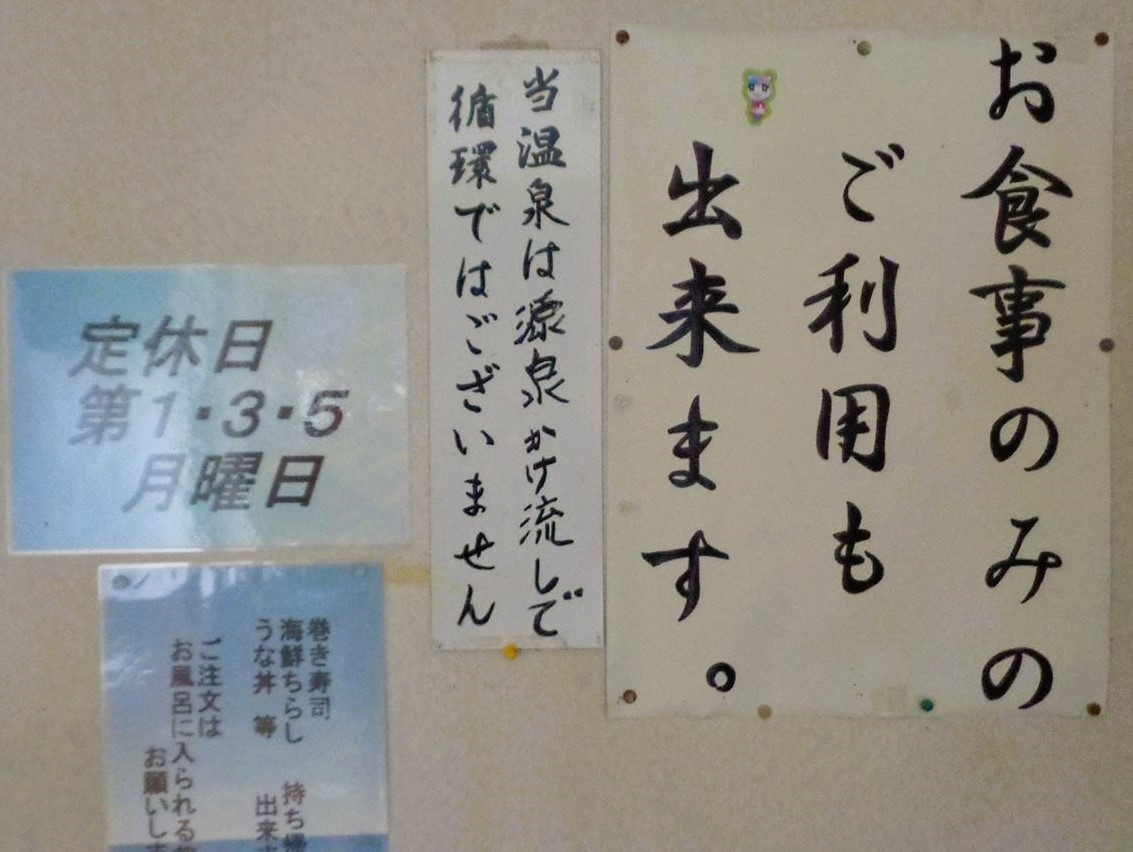 お食事のみの
ご利用も
出来ます。
当温泉は源泉かけ流しで
循環ではございません
定休日
第1・3・5
月曜日
巻き寿司
海鮮ちらし 持ち帰
うな丼 等 出来
ご注文は
お風呂に入られる
お願いしま